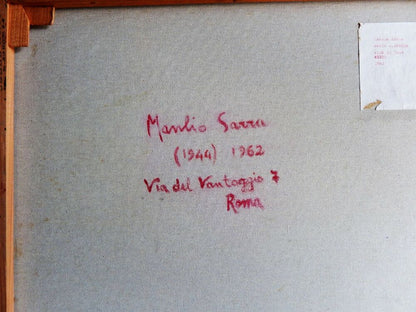 Manlio Sarra
(1944) 1962
Via del Vantaggio 7
Roma